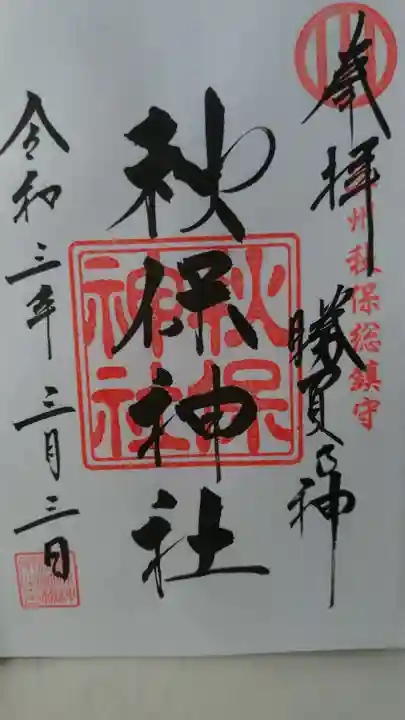 奉拝
奥州秋保総鎮守
勝負の神
秋保神社
秋保
神社
令和三年三月三日